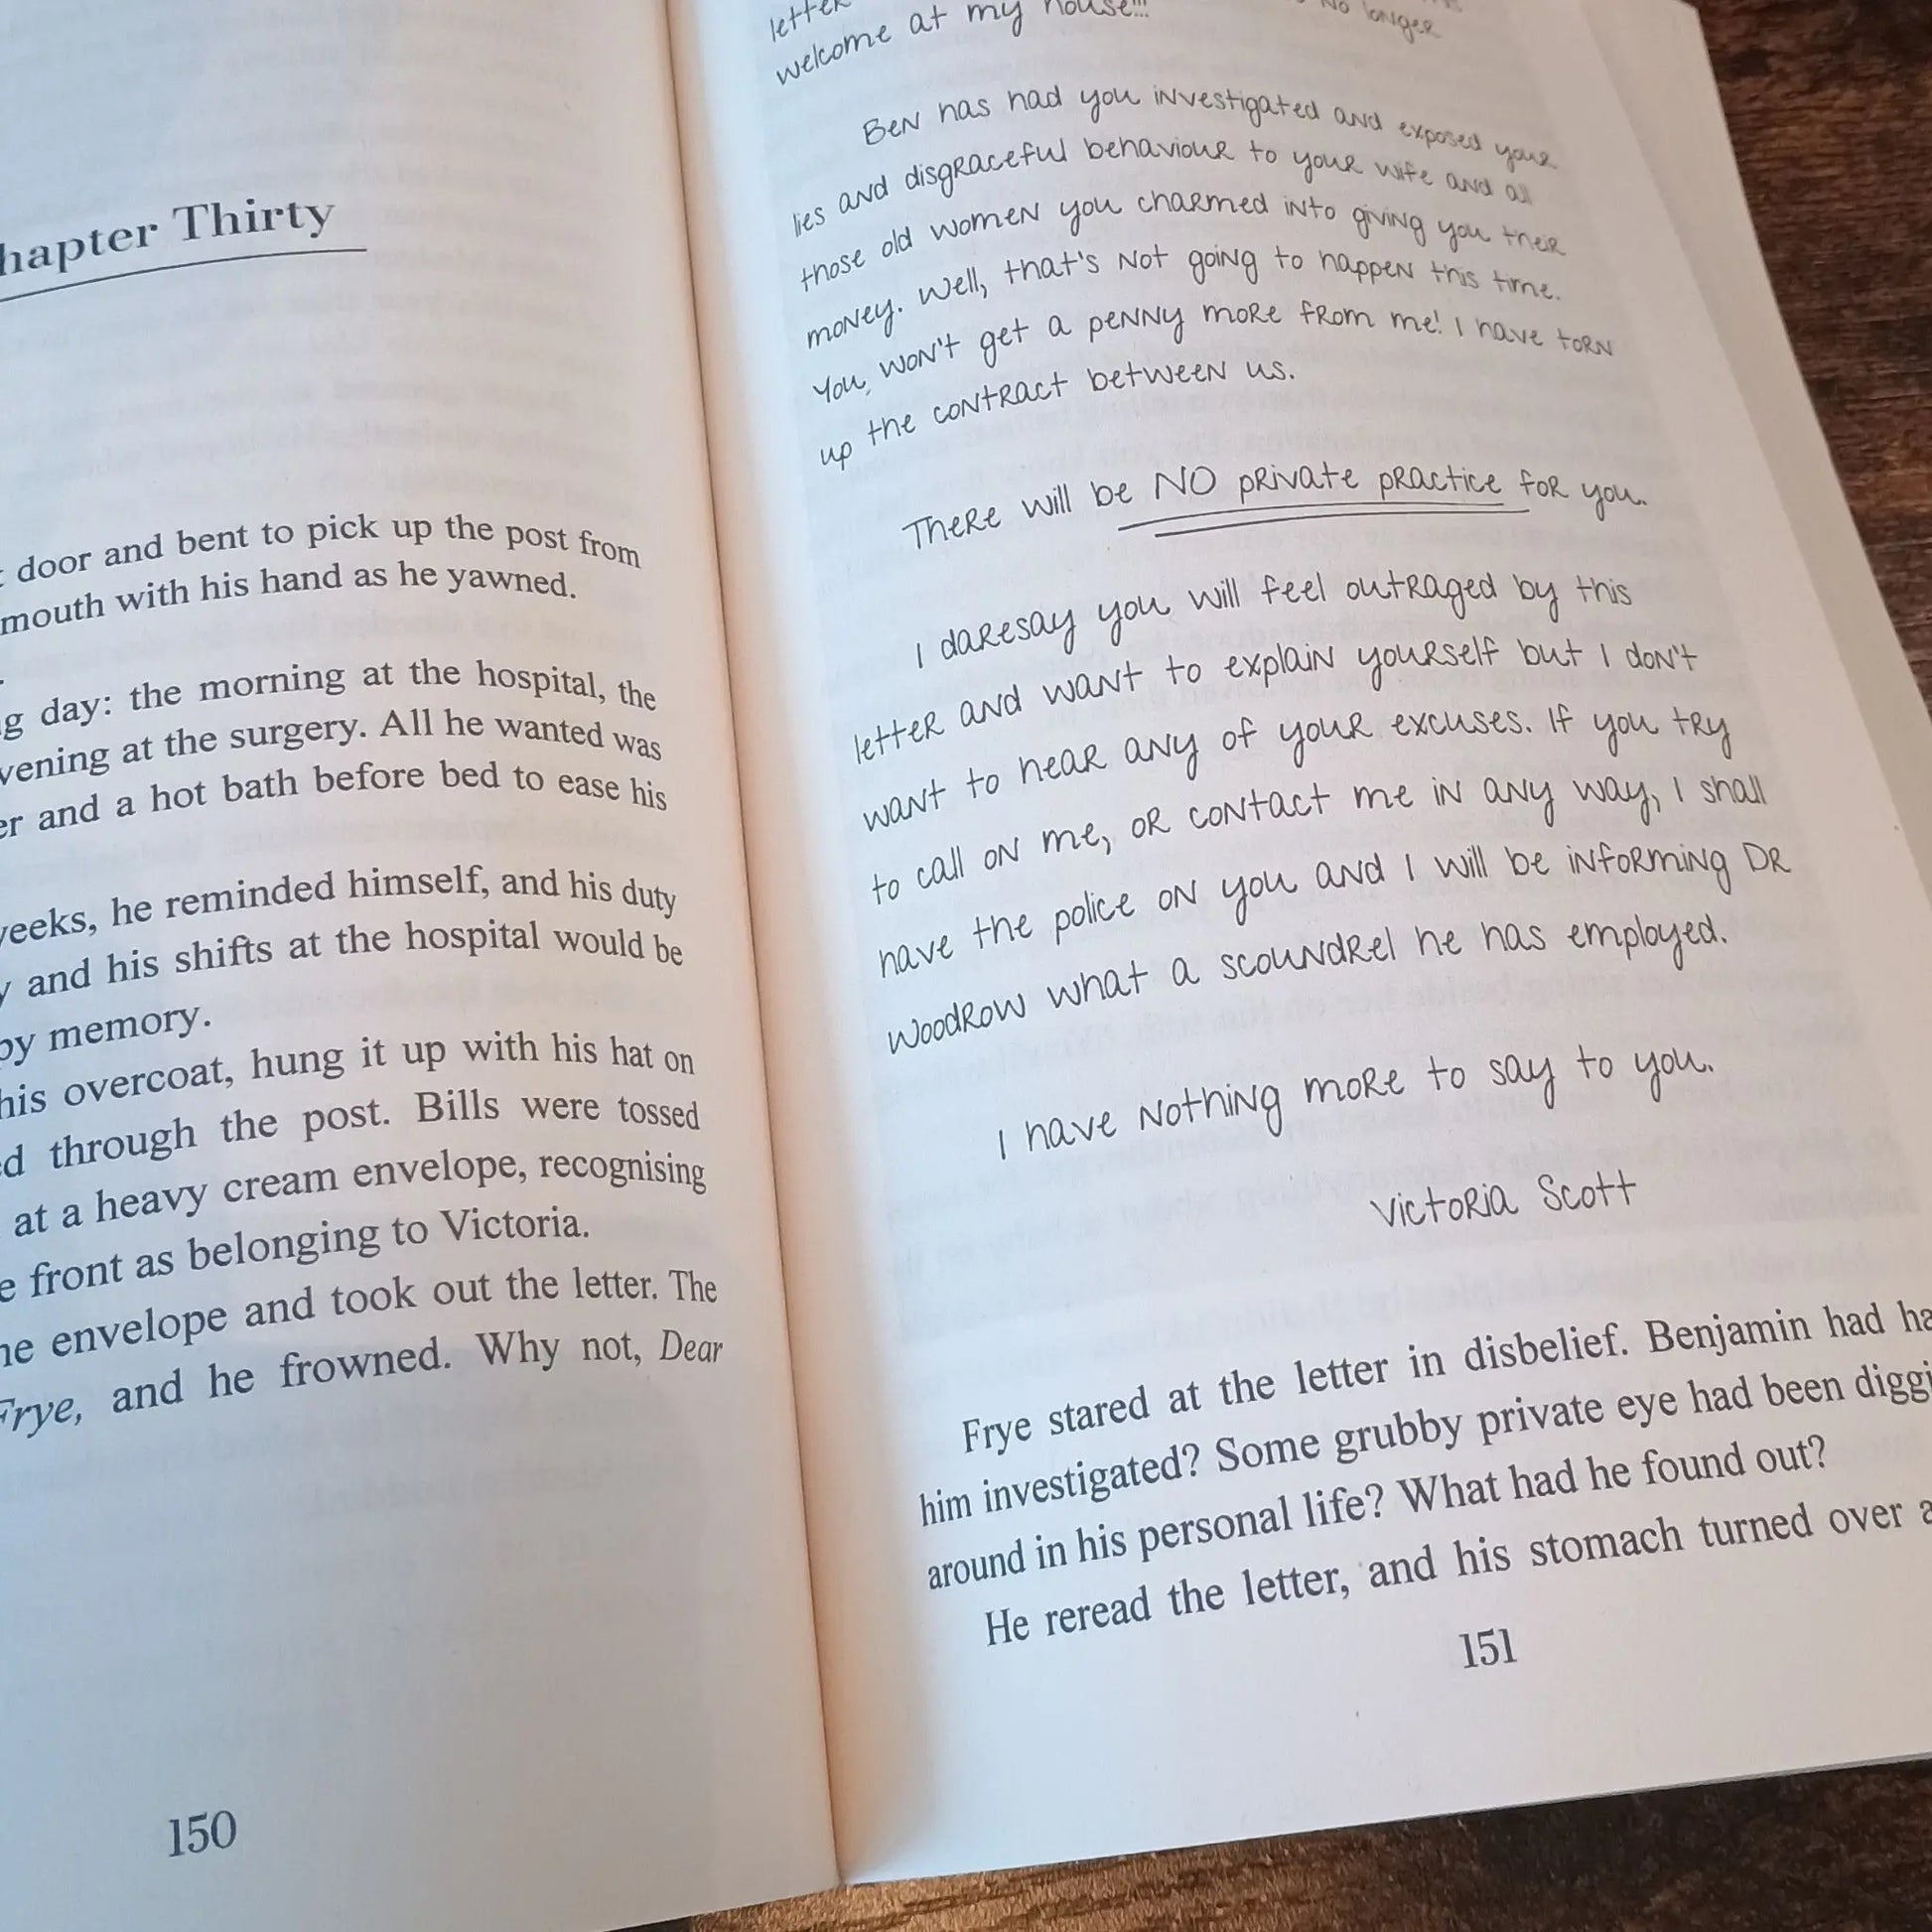 Chapter Thirty
door and bent to pick up the post from
mouth with his hand as he yawned.
day: the morning at the hospital, the
evening at the surgery. All he wanted was
and a hot bath before bed to ease his
weeks, he reminded himself, and his duty
and his shifts at the hospital would be
by memory.
his overcoat, hung it up with his hat on
through the post. Bills were tossed
at a heavy cream envelope, recognising
front as belonging to Victoria.
envelope and took out the letter. The
Frye, and he frowned. Why not, Dear
150
letter no longer
welcome at my house!!!
Ben has had you investigated and exposed your
lies and disgraceful behaviour to your wife and all
those old women you charmed into giving you their
money. Well, that's not going to happen this time.
You, won't get a penny more from me! I have torn
up the contract between us.
There will be NO private practice for you.
I daresay you will feel outraged by this
letter and want to explain yourself but I don't
want to hear any of your excuses. If you try
to call on me, or contact me in any way, I shall
have the police on you and I will be informing Dr
Woodrow what a scoundrel he has employed.
I have nothing more to say to you.
Victoria Scott
Frye stared at the letter in disbelief. Benjamin had
him investigated? Some grubby private eye had been
around in his personal life? What had he found out?
He reread the letter, and his stomach turned over
151